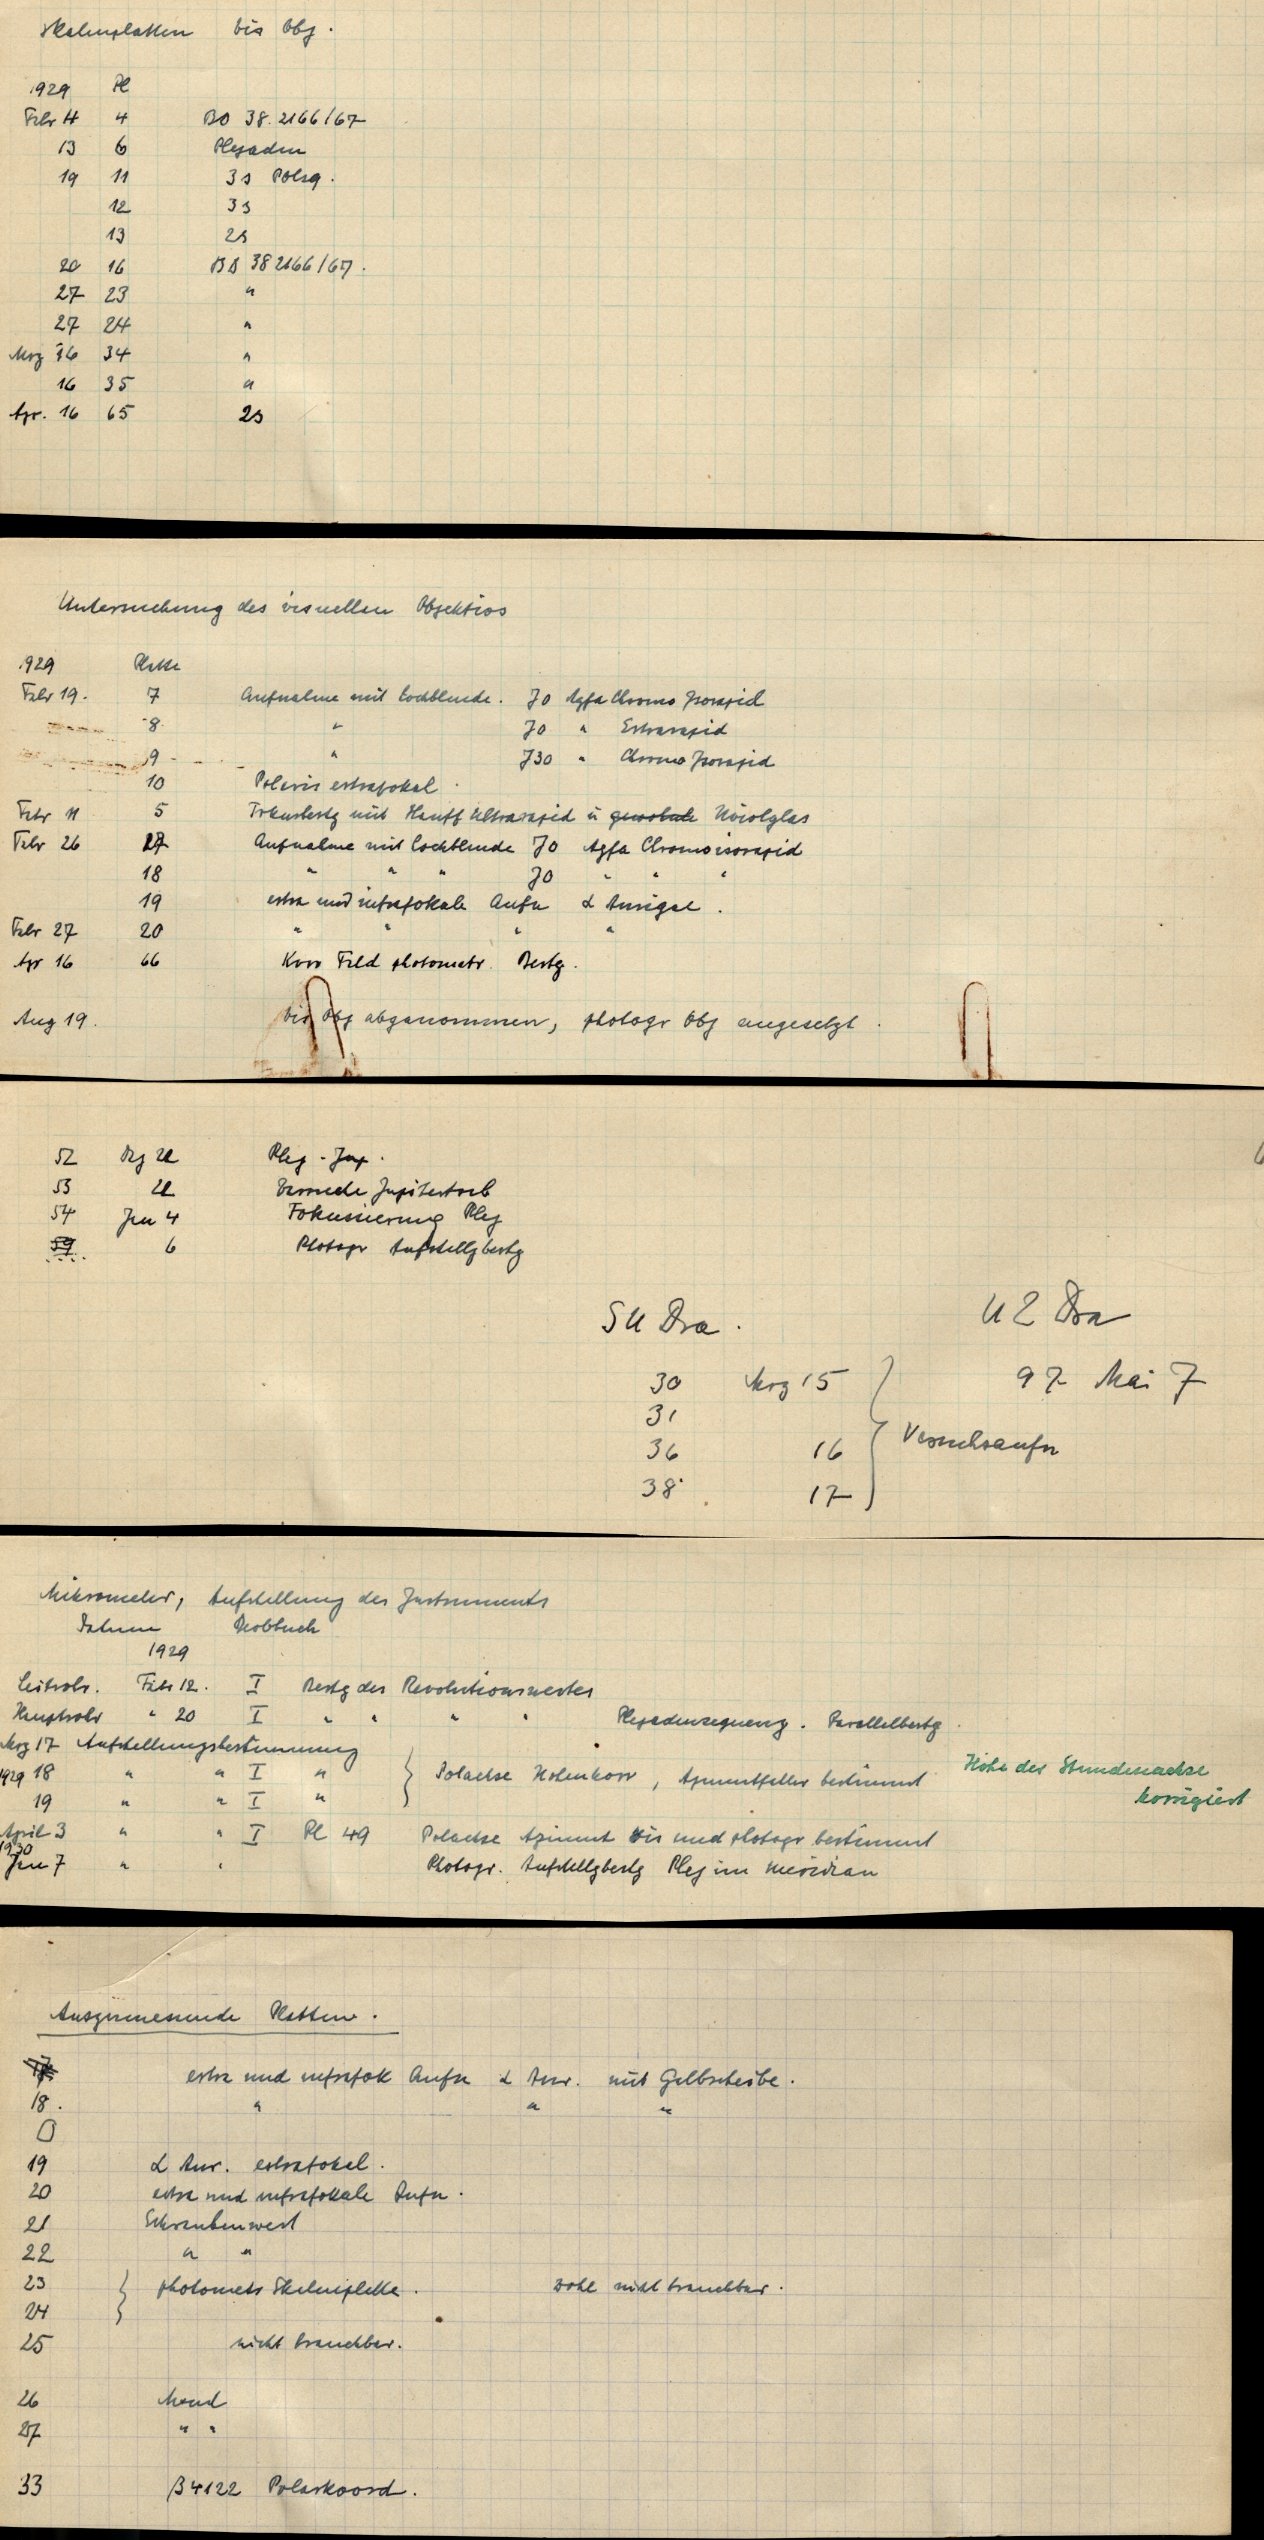 Skalenplatten vis Obj.
1929 Pl
Febr 4 4 BD 38.2166/67
13 6 Plejaden
19 11 3s Polsq.
12 3s
13 2s
20 16 BD 38 2166/67.
27 23 "
27 24 "
Mrz 16 34 "
16 35 "
Apr. 16 65 2s
Untersuchung des visuellen Objektivs
1929 Platte
Febr 19. 7 Aufnahme mit Lochblende. J0 Agfa Chromo Isorapid
8 " J0 " Extrarapid
9 " J30 " Chromo Isorapid
10 Polaris extrafokal.
Febr 11 5 Fokusbestg mit Hauff Ultrarapid u Uviolglas
Febr 26 17 Aufnahme mit Lochblende J0 Agfa Chromoisorapid
18 " " " J0 " " "
19 extra und intrafokale Aufn α Aurigae.
Febr 27 20 " " " "
Apr 16 66 Korr Feld photometr. Bestg.
Aug 19. vis Obj abgenommen, photogr Obj angesetzt.
52 Dez 22 Plej - Jup.
53 22 Versuche Jupitertrab
54 Jan 4 Fokussierung Plej
59 6 Photogr Aufstellgbestg
SU Dra. UZ Dra
30 Mrz 15 97 Mai 7
31
36 16 Versuchsaufn
38 17
Mikrometer, Aufstellung des Instruments
Datum Beobbuch
1929
Leitrohr. Febr 12. I Bestg des Revolutionswertes
Hauptrohr " 20 I " " " " Plejadensequenz. Parallelbestg.
Mrz 17 Aufstellungsbestimmung
1929 18 " " I " Polachse Höhenkorr, Azimutfehler bestimmt Höhe der Stundenachse
19 " " I " korrigiert
April 3 " " I Pl 49 Polachse Azimut vis und photogr bestimmt
1930
Jan 7 " " Photogr. Aufstellgbestg Plej im Meridian
Ausgemessene Platten.
17 extra und intrafok Aufn α Aur. mit Gelbscheibe.
18. " " "
19 α Aur. extrafokal.
20 extra und intrafokale Aufn.
21 Schraubenwert
22 " "
23 photometr Skalenplatte. wohl nicht brauchbar.
24
25 nicht brauchbar.
26 Mond
27 " "
33 B 4122 Polarkoord.